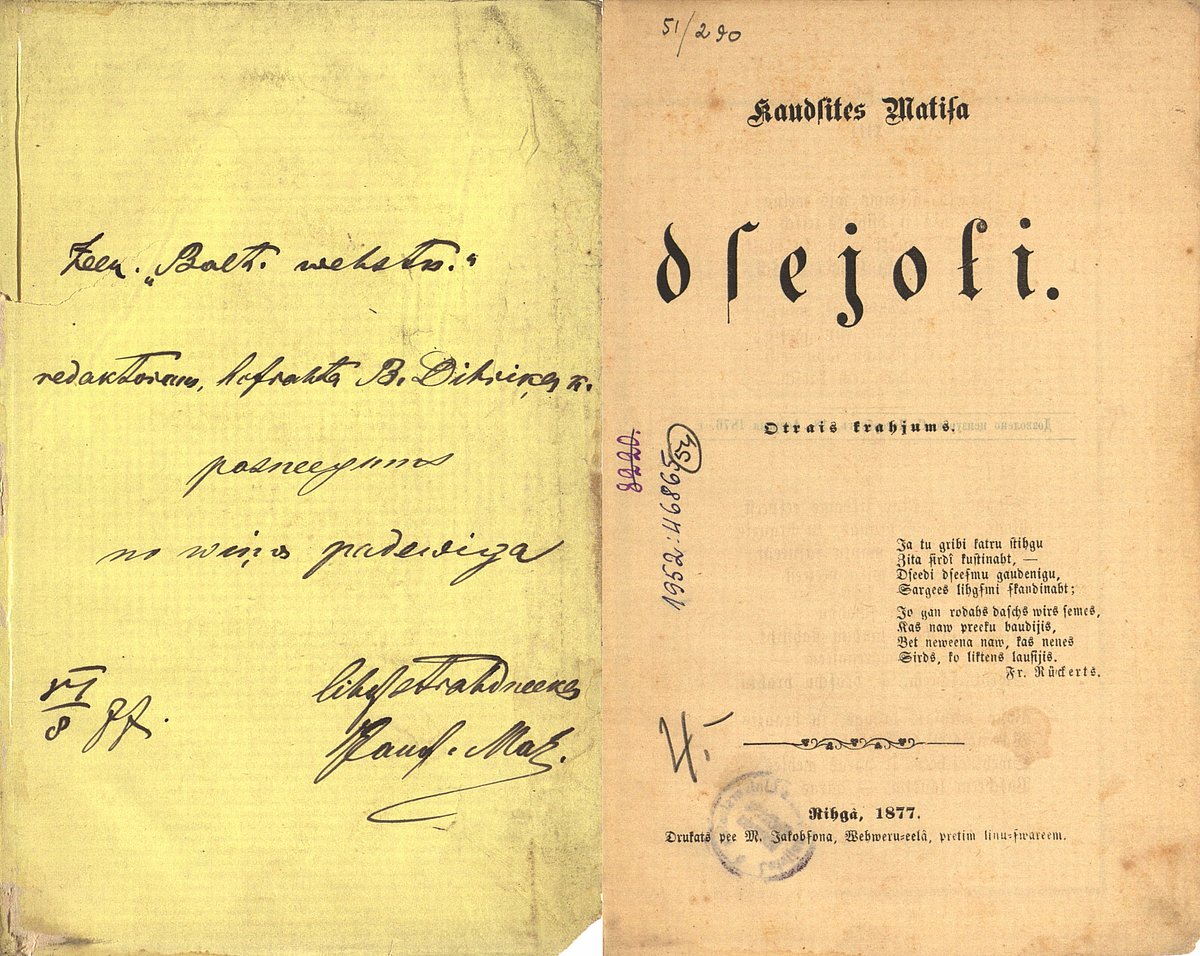 Zeen. „Balt. wehstn.“
redaktoram, B. Dihriķa k.
pasneegums
no wiņa padewiga
lihdsstrahdneeka
Kaudſ. Mat.
VI
8
77.
51/290
Kaudſites Matiſa
dſejoļi.
Otrais krahjums.
8220.
1952:46865
53
Ja tu gribi katru ſtihgu
Zita ſirdî kuſtinaht, —
Dſeedi dſeeſmu gaudenigu,
Sargees lihgſmi ſkandinaht;
Jo gan rodahs daſchs wirs ſemes,
Kas naw preeku baudijis,
Bet neweena naw, kas nenes
Sirds, ko liktens lauſijis.
Fr. Rückerts.
Rihgâ, 1877.
Drukats pee M. Jakobſona, Wehweru-eelâ, pretim linu-ſwareem.